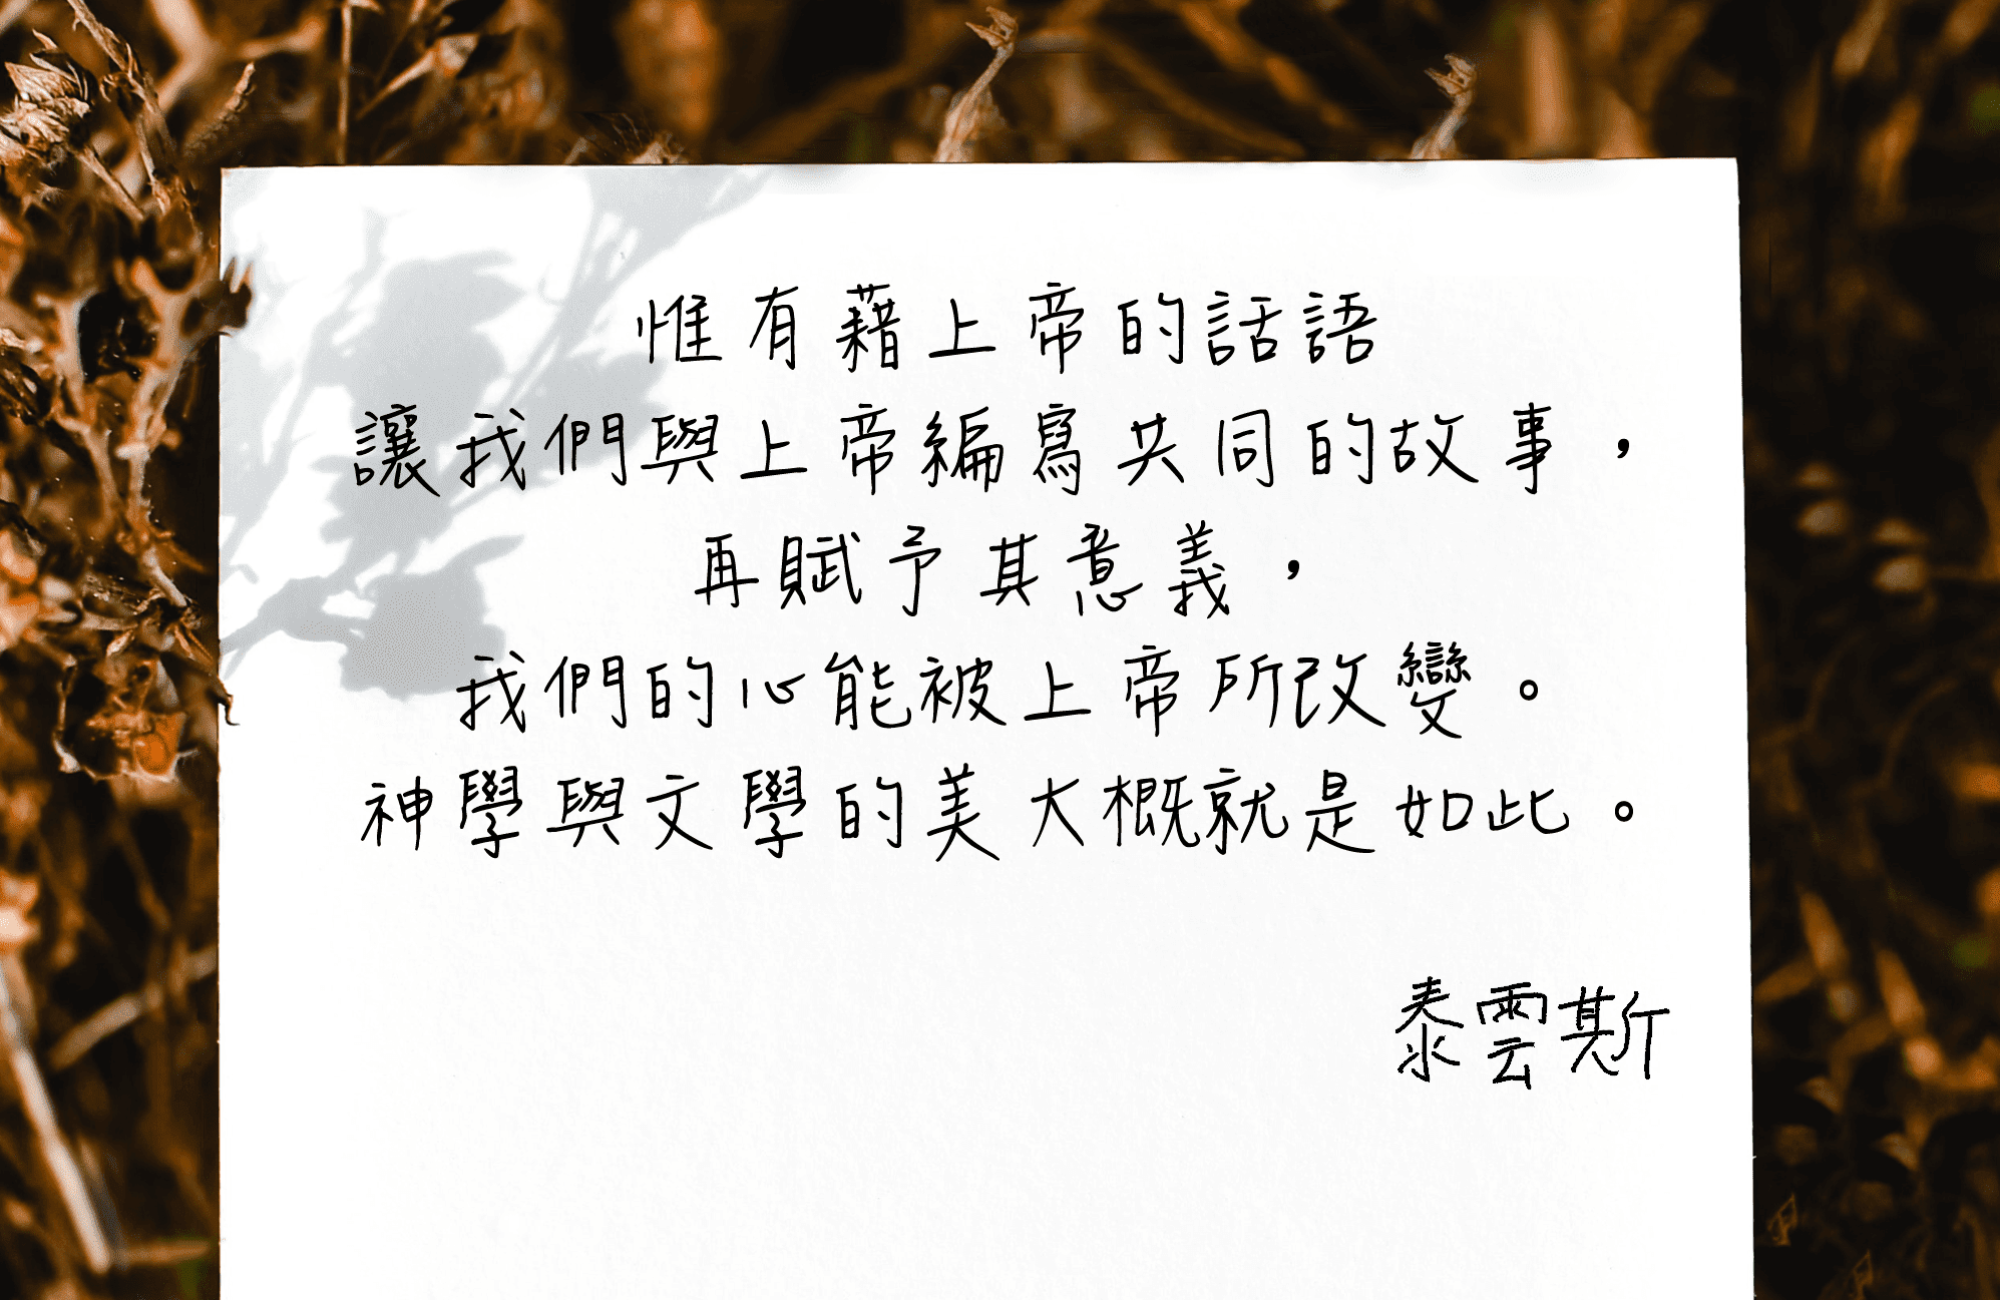 惟有藉上帝的話語
讓我們與上帝編寫共同的故事，
再賦予其意義，
我們的心能被上帝所改變。
神學與文學的美大概就是如此。
泰雲斯